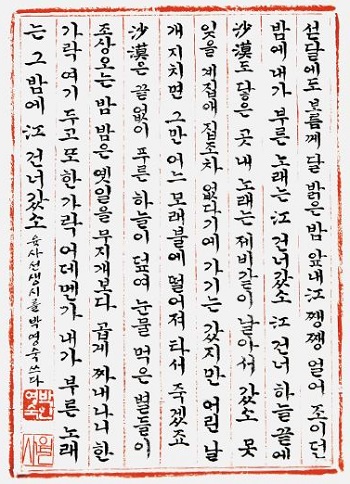 섣달에도 보름께 달 밝은 밤 앞내江 쨍쨍 얼어 조이던
밤에 내가 부른 노래는 江 건너갔소 江 건너 하늘 끝에
沙漠도 닿은 곳 내 노래는 제비같이 날아서 갔소 못
잊을 계집애 집조차 없다기에 가기는 갔지만 어린 날
개 지치면 그만 어느 모래불에 떨어져 타서 죽겠죠
沙漠은 끝없이 푸른 하늘이 덮여 눈물 먹은 별들이
조상오는 밤 밤은 옛일을 무지개보다 곱게 짜내나니 한
가락 여기 두고 또 한 가락 어데멘가 내가 부른 노래
는 그 밤에 江 건너갔소 육사선생시를 박영숙 쓰다